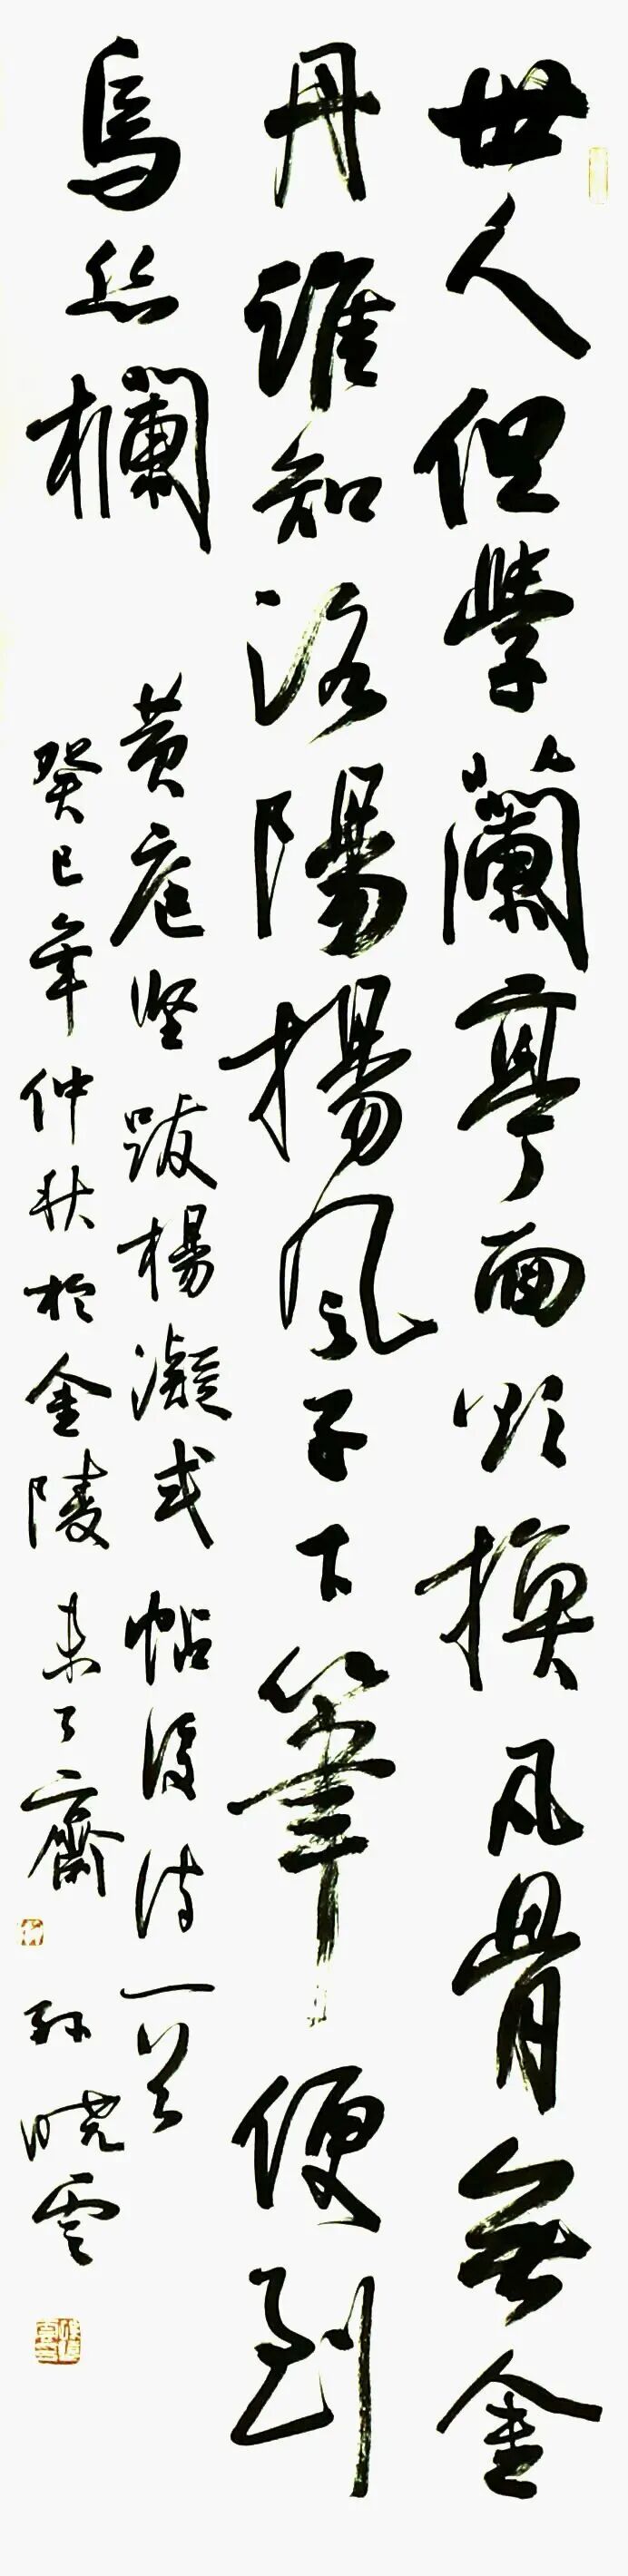 世人但學蘭亭面欲換凡骨無金
丹誰知洛陽楊風子下筆便到
烏絲欄
黃庭堅跋楊凝式帖後詩一首
癸巳年仲秋於金陵未了齋 孫曉雲